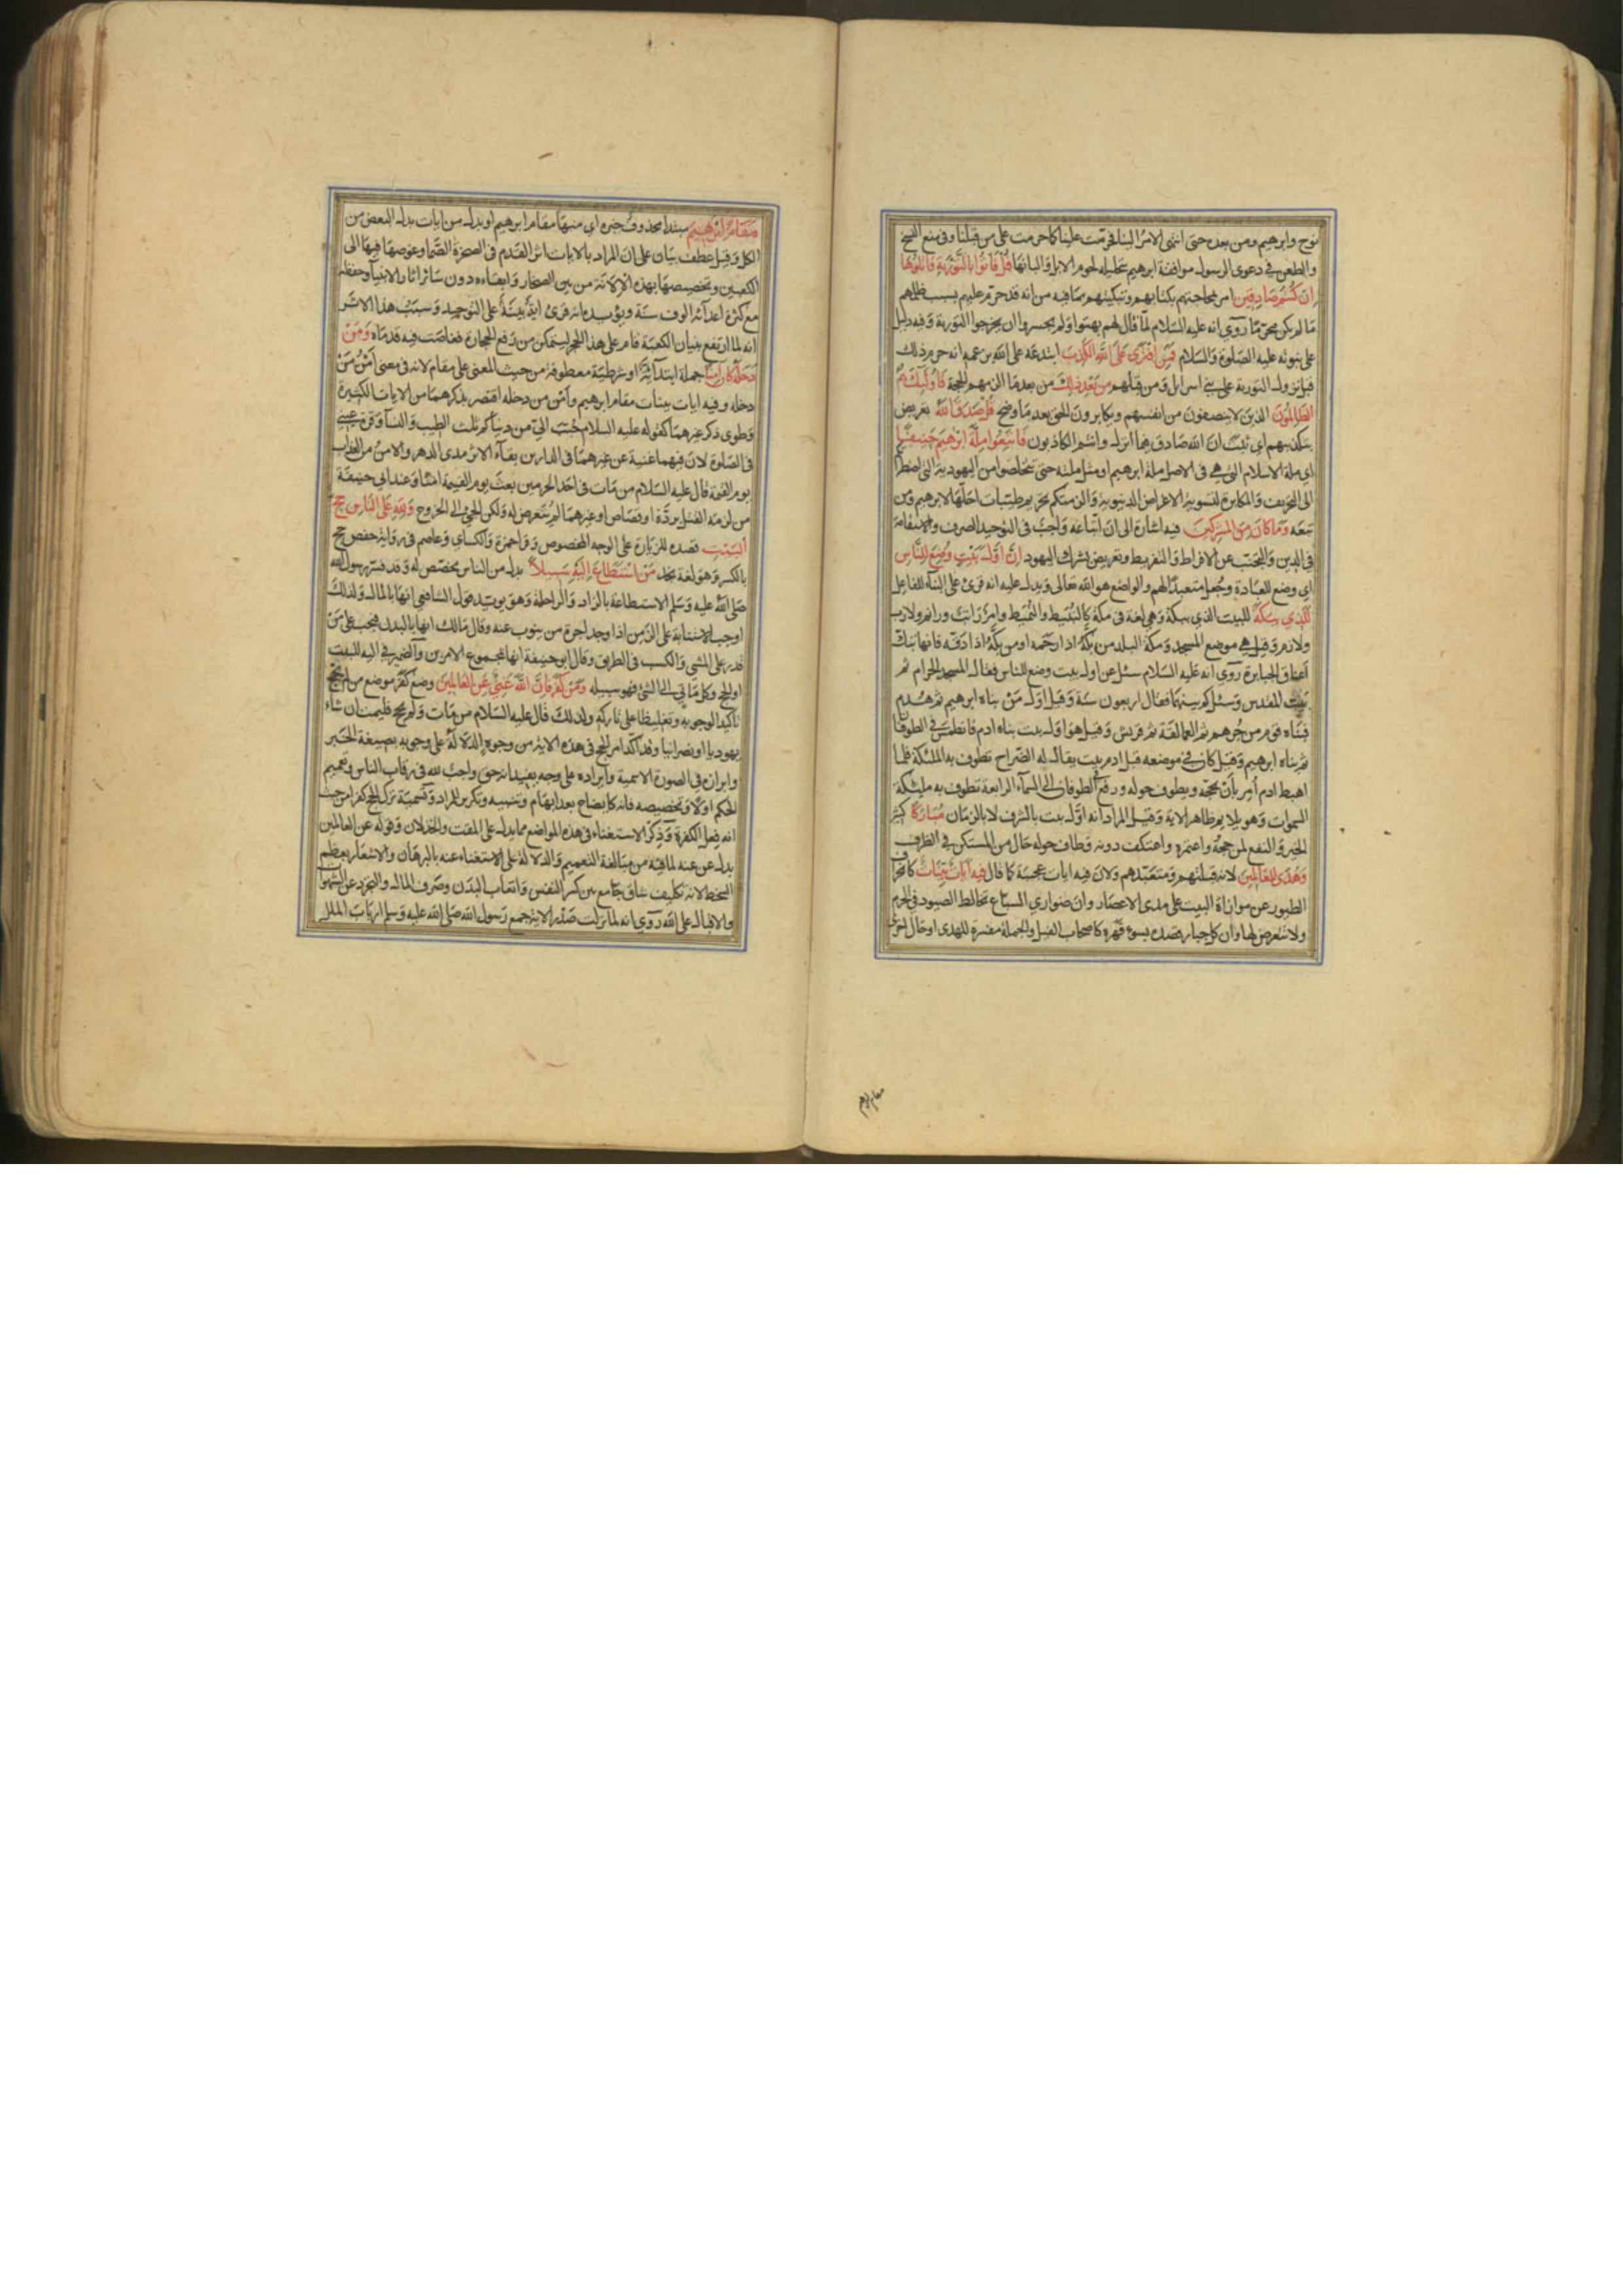 نوح وابرهيم ومن بعده حتى انتهى الامر الينا فحرمت علينا كما حرمت على من قبلنا وفى منع النسخ
والطعن فى دعوى الرسول موافقة ابرهيم بتحليله لحوم الابل والبانها قُلْ فَأْتُوا بِالتَّوْرٰيةِ فَاتْلُوهَا
اِنْ كُنْتُمْ صَادِقِينَ امر بمحاجتهم بكتابهم وتبكيتهم بما فيه من انه قد حرم عليهم بسبب ظلمهم
ما لم يكن محرما روي انه عليه السلام لما قال لهم بهتوا ولم يجسروا ان يخرجوا التورية وفيه دليل
على نبوته عليه الصلوة والسلام فَمَنِ افْتَرٰى عَلَى اللهِ الْكَذِبَ ابتدعه على الله بزعمه انه حرم ذلك
قبل نزول التورية على بني اسرايل ومن قبلهم مِنْ بَعْدِ ذٰلِكَ من بعد ما الزمهم الحجة فَاُولٰئِكَ هُمُ
الظَّالِمُونَ الذين لا ينصفون من انفسهم ويكابرون الحق بعد ما وضح قُلْ صَدَقَ اللهُ تعريض
بكذبهم اي ثبت ان الله صادق فيما انزل وانتم الكاذبون فَاتَّبِعُوا مِلَّةَ اِبْرٰهِيمَ حَنِيفًا
اي ملة الاسلام التي هي فى الاصل ملة ابرهيم او مثل ملته حتى تتخلصوا من اليهودية التى اضطرتكم
الى التحريف والمكابرة لتسوية الاغراض الدنيوية والزمتكم تحريم طيبات احلها لابرهيم ومن
تبعه وَمَا كَانَ مِنَ الْمُشْرِكِينَ فيه اشارة الى ان اتباعه واجب فى التوحيد الصرف والاستقامة
فى الدين والتجنب عن الافراط والتفريط وتعريض بشرك اليهود اِنَّ اَوَّلَ بَيْتٍ وُضِعَ لِلنَّاسِ
اي وضع للعبادة وجعل متعبدا لهم والواضع هو الله تعالى ويدل عليه انه قرئ على البناء للفاعل
لَلَّذِي بِبَكَّةَ للبيت الذي ببكة وهي لغة فى مكة كالنبيط والنميط وامر راتب وراتم ولازب
ولازم وقيل هي موضع المسجد ومكة البلد من بكه اذا زحمه او من بكه اذا دقه فانها تبك
اعناق الجبابرة روي انه عليه السلام سئل عن اول بيت وضع للناس فقال المسجد الحرام ثم
بيت المقدس وسئل كم بينهما فقال اربعون سنة وقيل اول من بناه ابرهيم ثم هدم
فبناه قوم من جرهم ثم العمالقة ثم قريش وقيل هو اول بيت بناه ادم فانطمس فى الطوفان
ثم بناه ابرهيم وقيل كان فى موضعه قبل ادم بيت يقال له الضراح تطوف به الملئكة فلما
اهبط ادم امر بان يحجه ويطوف حوله ورفع فى الطوفان الى السماء الرابعة تطوف به مليئكة
السموات وهو لا يلايم ظاهر الاية وقيل المراد انه اول بيت بالشرف لا بالزمان مُبَارَكًا كثير
الخير والنفع لمن حجه واعتمره واعتكف دونه وطاف حوله حال من المستكن فى الظرف
وَهُدًى لِلْعَالَمِينَ لانه قبلتهم ومتعبدهم ولان فيه ايات عجيبة كما قال فِيهِ اٰيَاتٌ بَيِّنَاتٌ كانحراف
الطيور عن موازاة البيت على مدى الاعصار وان ضواري السباع تخالط الصيود فى الحرم
ولا تتعرض لها وان كل جبار قصده بسوء قهره كاصحاب الفيل والجملة مفسرة للهدى او حال اخرى
مقام ابرهيم
مَقَامُ اِبْرٰهِيمَ مبتدا محذوف خبره اي منها مقام ابرهيم او بدل من ايات بدل البعض من
الكل وقيل عطف بيان على ان المراد بالايات اثر القدم فى الصخرة الصماء وغوصها فيها الى
الكعبين وتخصيصها بهذه الالانة من بين الصخار وابقاءه دون سائر اثار الانبياء وحفظه
مع كثرة اعدائه الوف سنة ويؤيده انه قرئ اية بينة على التوحيد وسبب هذا الاثر
انه لما ارتفع بنيان الكعبة قام على هذا الحجر ليتمكن من رفع الحجارة فغاصت فيه قدماه وَمَنْ
دَخَلَهُ كَانَ اٰمِنًا جملة ابتدائية او شرطية معطوفة من حيث المعنى على مقام لانه فى معنى امن من
دخله وفيه ايات بينات مقام ابرهيم وامن من دخله اقتصر بذكرهما من الايات الكثيرة
وطوى ذكر غيرهما كقوله عليه السلام حبب الي من دنياكم ثلث الطيب والنساء وقرة عيني
فى الصلوة لان فيهما غنية عن غيرهما فى الدارين بقاء الاثر مدى الدهر والامن من العذاب
يوم القيمة قال عليه السلام من مات فى احد الحرمين بعث يوم القيمة امنا وعند ابي حنيفة
من لزمه القتل بردة او قصاص او غيرهما لم يتعرض له ولكن الجئ الى الخروج وَلِلهِ عَلَى النَّاسِ حِجُّ
الْبَيْتِ قصده للزيارة على الوجه المخصوص وقرا حمزة والكسائ وعاصم فى رواية حفص حج
بالكسر وهو لغة نجد مَنِ اسْتَطَاعَ اِلَيْهِ سَبِيلًا بدل من الناس مخصص له وقد فسر رسول الله
صلى الله عليه وسلم الاستطاعة بالزاد والراحلة وهو يويد قول الشافعي انها بالمال ولذلك
اوجب الاستنابة على الزمن اذا وجد اجرة من ينوب عنه وقال مالك انها بالبدن فيجب على من
قدر على المشي والكسب فى الطريق وقال ابو حنيفة انها بمجموع الامرين والضمير فى اليه للبيت
او الحج وكل ما يي الى الشئ فهو سبيله وَمَنْ كَفَرَ فَاِنَّ اللهَ غَنِيٌّ عَنِ الْعَالَمِينَ وضع كفر موضع من لم يحج
تاكيدا لوجوبه وتغليظا على تاركه ولذلك قال عليه السلام من مات ولم يحج فليمت ان شاء
يهوديا او نصرانيا وقد اكد امر الحج فى هذه الاية من وجوه الدلالة على وجوبه بصيغة الخبر
وابرازه فى الصورة الاسمية وايراده على وجه يفيد انه حق واجب لله فى رقاب الناس وتعميم
الحكم اولا وتخصيصه فانه كايضاح بعد ابهام وتثنيه وتكرير للمراد وتسمية ترك الحج كفرا من حيث
انه فعل الكفرة وذكر الاستغناء فى هذه المواضع مما يدل على المقت والخذلان وقوله عن العالمين
بدل عن عنه لما فيه من مبالغة التعميم والدلالة على الاستغناء عنه بالبرهان والاشعار بعظم
السخط لانه تكليف شاق جامع بين كسر النفس واتعاب البدن وصرف المال والتجرد عن الشهوات
والاقبال على الله روي انه لما نزلت صدر الاية جمع رسول الله صلى الله عليه وسلم ارباب الملل